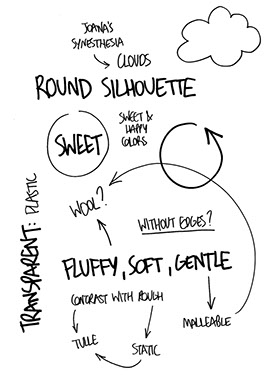 JOANA'S
SYNESTHESIA
CLOUDS
ROUND SILHOUETTE
SWEET
SWEET &
HAPPY
COLORS
WOOL?
WITHOUT EDGES?
FLUFFY, SOFT, GENTLE
CONTRAST WITH ROUGH
MALLEABLE
TULLE
STATIC
TRANSPARENT: PLASTIC